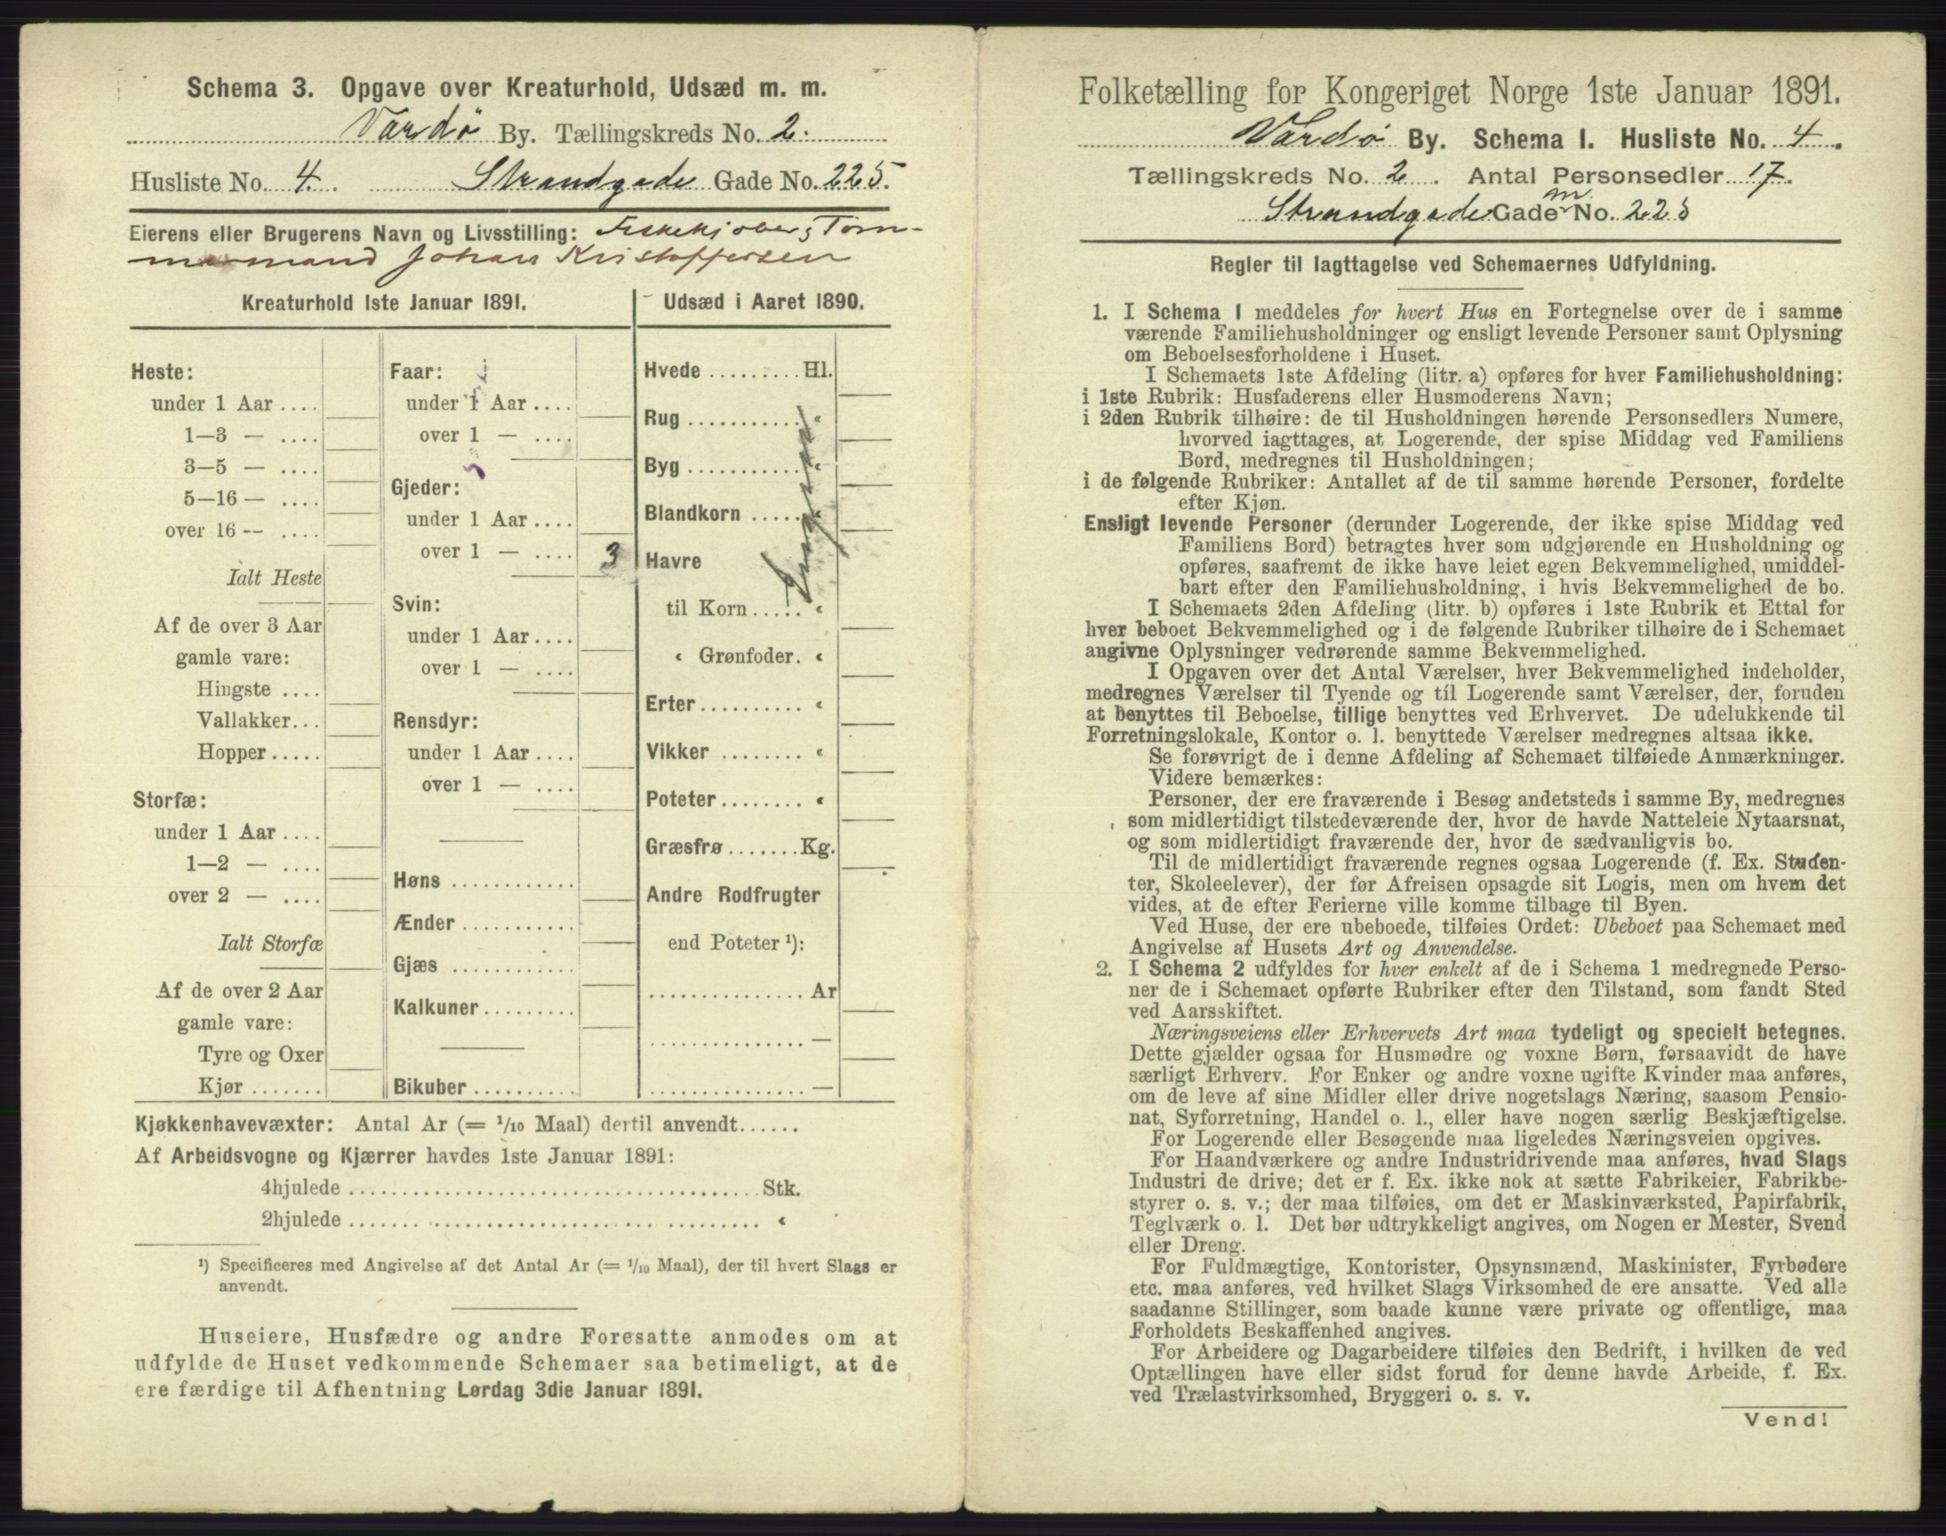 Schema 3. Opgave over Kreaturhold, Udsæd m. m.
Vardø By. Tællingskreds No. 2.
Husliste No. 4. Strandgade Gade No. 225.
Eierens eller Brugerens Navn og Livsstilling: Fiskekjøber, Tøm-
mermand Johan Kristoffersen
Kreaturhold 1ste Januar 1891.
Heste:
under 1 Aar ....
1—3 — ....
3—5 — ....
5—16 — ....
over 16 — ....
Ialt Heste
Af de over 3 Aar
gamle vare:
Hingste ....
Vallakker...
Hopper .....
Storfæ:
under 1 Aar ....
1—2 — ....
over 2 — ....
Ialt Storfæ
Af de over 2 Aar
gamle vare:
Tyre og Oxer
Kjør .......
Faar:
under 1 Aar ....
over 1 — ....
Gjeder:
under 1 Aar ....
over 1 — .... 3
Svin:
under 1 Aar ....
over 1 — ....
Rensdyr:
under 1 Aar ....
over 1 — ....
Høns ............
Ænder ...........
Gjæs ............
Kalkuner.........
Bikuber ..........
Udsæd i Aaret 1890.
Hvede ......... Hl.
Rug ........... «
Byg ........... «
Blandkorn ...... «
Havre
til Korn ..... «
« Grønfoder. «
Erter.......... «
Vikker ........ «
Poteter........ «
Græsfrø.......Kg.
Andre Rodfrugter
end Poteter ¹):
............... Ar
............... —
............... —
Kjøkkenhavevæxter: Antal Ar (= 1/10 Maal) dertil anvendt......
Af Arbeidsvogne og Kjærrer havdes 1ste Januar 1891:
4hjulede ........................................ Stk.
2hjulede ........................................ «
¹) Specificeres med Angivelse af det Antal Ar (= 1/10 Maal), der til hvert Slags er
anvendt.
Huseiere, Husfædre og andre Foresatte anmodes om at
udfylde de Huset vedkommende Schemaer saa betimeligt, at de
ere færdige til Afhentning Lørdag 3die Januar 1891.
Folketælling for Kongeriget Norge 1ste Januar 1891.
Vardø By. Schema I. Husliste No. 4.
Tællingskreds No. 2. Antal Personsedler 17.
Strandgade Gade No. 225
Regler til Iagttagelse ved Schemaernes Udfyldning.
1. I Schema I meddeles for hvert Hus en Fortegnelse over de i samme
værende Familiehusholdninger og ensligt levende Personer samt Oplysning
om Beboelsesforholdene i Huset.
I Schemaets 1ste Afdeling (litr. a) opføres for hver Familiehusholdning:
i 1ste Rubrik: Husfaderens eller Husmoderens Navn;
i 2den Rubrik tilhøire: de til Husholdningen hørende Personsedlers Numere,
hvorved iagttages, at Logerende, der spise Middag ved Familiens
Bord, medregnes til Husholdningen;
i de følgende Rubriker: Antallet af de til samme hørende Personer, fordelte
efter Kjøn.
Ensligt levende Personer (derunder Logerende, der ikke spise Middag ved
Familiens Bord) betragtes hver som udgjørende en Husholdning og
opføres, saafremt de ikke have leiet egen Bekvemmelighed, umiddel-
bart efter den Familiehusholdning, i hvis Bekvemmelighed de bo.
I Schemaets 2den Afdeling (litr. b) opføres i 1ste Rubrik et Ettal for
hver beboet Bekvemmelighed og i de følgende Rubriker tilhøire de i Schemaet
angivne Oplysninger vedrørende samme Bekvemmelighed.
I Opgaven over det Antal Værelser, hver Bekvemmelighed indeholder,
medregnes Værelser til Tyende og til Logerende samt Værelser, der, foruden
at benyttes til Beboelse, tillige benyttes ved Erhvervet. De udelukkende til
Forretningslokale, Kontor o. l. benyttede Værelser medregnes altsaa ikke.
Se forøvrigt de i denne Afdeling af Schemaet tilføiede Anmærkninger.
Videre bemærkes:
Personer, der ere fraværende i Besøg andetsteds i samme By, medregnes
som midlertidigt tilstedeværende der, hvor de havde Natteleie Nytaarsnat,
og som midlertidigt fraværende der, hvor de sædvanligvis bo.
Til de midlertidigt fraværende regnes ogsaa Logerende (f. Ex. Studen-
ter, Skoleelever), der før Afreisen opsagde sit Logis, men om hvem det
vides, at de efter Ferierne ville komme tilbage til Byen.
Ved Huse, der ere ubeboede, tilføies Ordet: Ubeboet paa Schemaet med
Angivelse af Husets Art og Anvendelse.
2. I Schema 2 udfyldes for hver enkelt af de i Schema 1 medregnede Perso-
ner de i Schemaet opførte Rubriker efter den Tilstand, som fandt Sted
ved Aarsskiftet.
Næringsveiens eller Erhvervets Art maa tydeligt og specielt betegnes.
Dette gjælder ogsaa for Husmødre og voxne Børn, forsaavidt de have
særligt Erhverv. For Enker og andre voxne ugifte Kvinder maa anføres,
om de leve af sine Midler eller drive nogetslags Næring, saasom Pensio-
nat, Syforretning, Handel o. l., eller have nogen særlig Beskjæftigelse.
For Logerende eller Besøgende maa ligeledes Næringsveien opgives.
For Haandværkere og andre Industridrivende maa anføres, hvad Slags
Industri de drive; det er f. Ex. ikke nok at sætte Fabrikeier, Fabrikbe-
styrer o. s. v.; der maa tilføies, om det er Maskinværksted, Papirfabrik,
Teglværk o. l. Det bør udtrykkeligt angives, om Nogen er Mester, Svend
eller Dreng.
For Fuldmægtige, Kontorister, Opsynsmænd, Maskinister, Fyrbødere
etc. maa anføres, ved hvilket Slags Virksomhed de ere ansatte. Ved alle
saadanne Stillinger, som baade kunne være private og offentlige, maa
Forholdets Beskaffenhed angives.
For Arbeidere og Dagarbeidere tilføies den Bedrift, i hvilken de ved
Optællingen have eller sidst forud for denne havde Arbeide, f. Ex.
ved Trælastvirksomhed, Bryggeri o. s. v.
Vend!